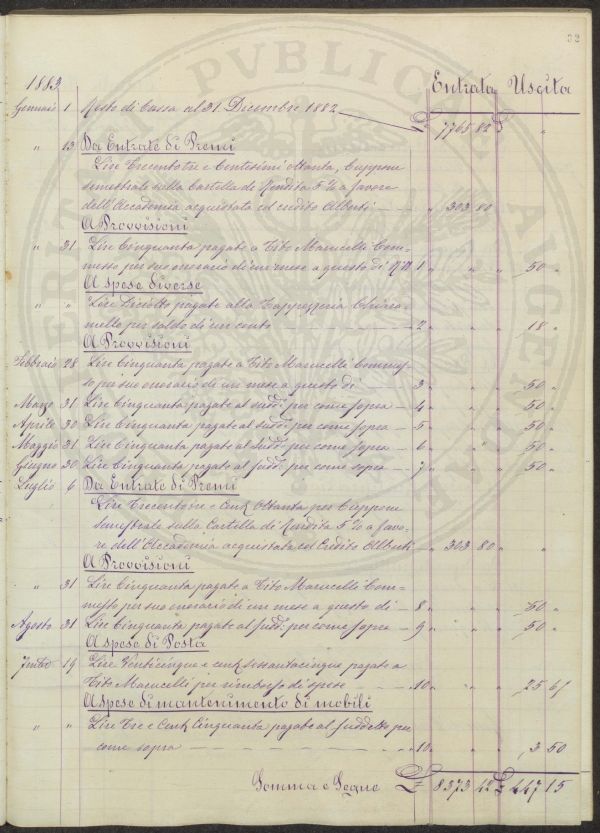 32
1883 Entrata Uscita
Gennaio 1 Resto di Cassa al 31 Dicembre 1882 £ 7765 82 £ "
" 13 Da Entrate di Premi
Lire Trecentotre e Centesimi ottanta, Cuppone
semestrale sulla Cartella di Rendita 5% a favore
dell'Accademia acquistata col credito Alberti — " 303 80
A Provvisioni
" 31 Lire Cinquanta pagate a Tito Marucelli Com-
messo per suo onorario di un mese a questo dì 1 " " " 50 "
A Spese diverse
" " Lire Diciotto pagate alla Tappezzeria Chiara-
per saldo di un conto — 2 " " " 18 "
A Provvisioni
Febbraio 28 Lire Cinquanta pagate a Tito Marucelli Commes-
so per suo onorario di un mese a questo dì — 3 " " " 50 "
Marzo 31 Lire Cinquanta pagate al sudd. per come sopra — 4 " " " 50 "
Aprile 30 Lire Cinquanta pagate al sudd. per come sopra — 5 " " " 50 "
Maggio 31 Lire Cinquanta pagate al sudd. per come sopra — 6 " " " 50 "
Giugno 30 Lire Cinquanta pagate al sudd. per come sopra — 7 " " " 50 "
Luglio 6 Da Entrate di Premi
Lire Trecentotre e Cent. Ottanta per Cuppone
semestrale sulla Cartella di Rendita 5% a favo-
re dell'Accademia acquistata col Credito Alberti — " 303 80 " "
A Provvisioni
" 31 Lire Cinquanta pagate a Tito Marucelli Com-
messo per suo onorario di un mese a questo dì — 8 " " " 50 "
Agosto 31 Lire Cinquanta pagate al sudd. per come sopra — 9 " " " 50 "
A spese di Posta
7mbre 19 Lire Venticinque e cent. sessantacinque pagate a
Tito Marucelli per rimborso di spese — 10 " " " 25 65
A Spese di mantenimento di mobili
" " Lire Tre e Cent. Cinquanta pagate al Suddetto per
come sopra — 10 " " " 3 50
Somma e Segue £ 8373 42 £ 447 15
PVBLICAE AVG